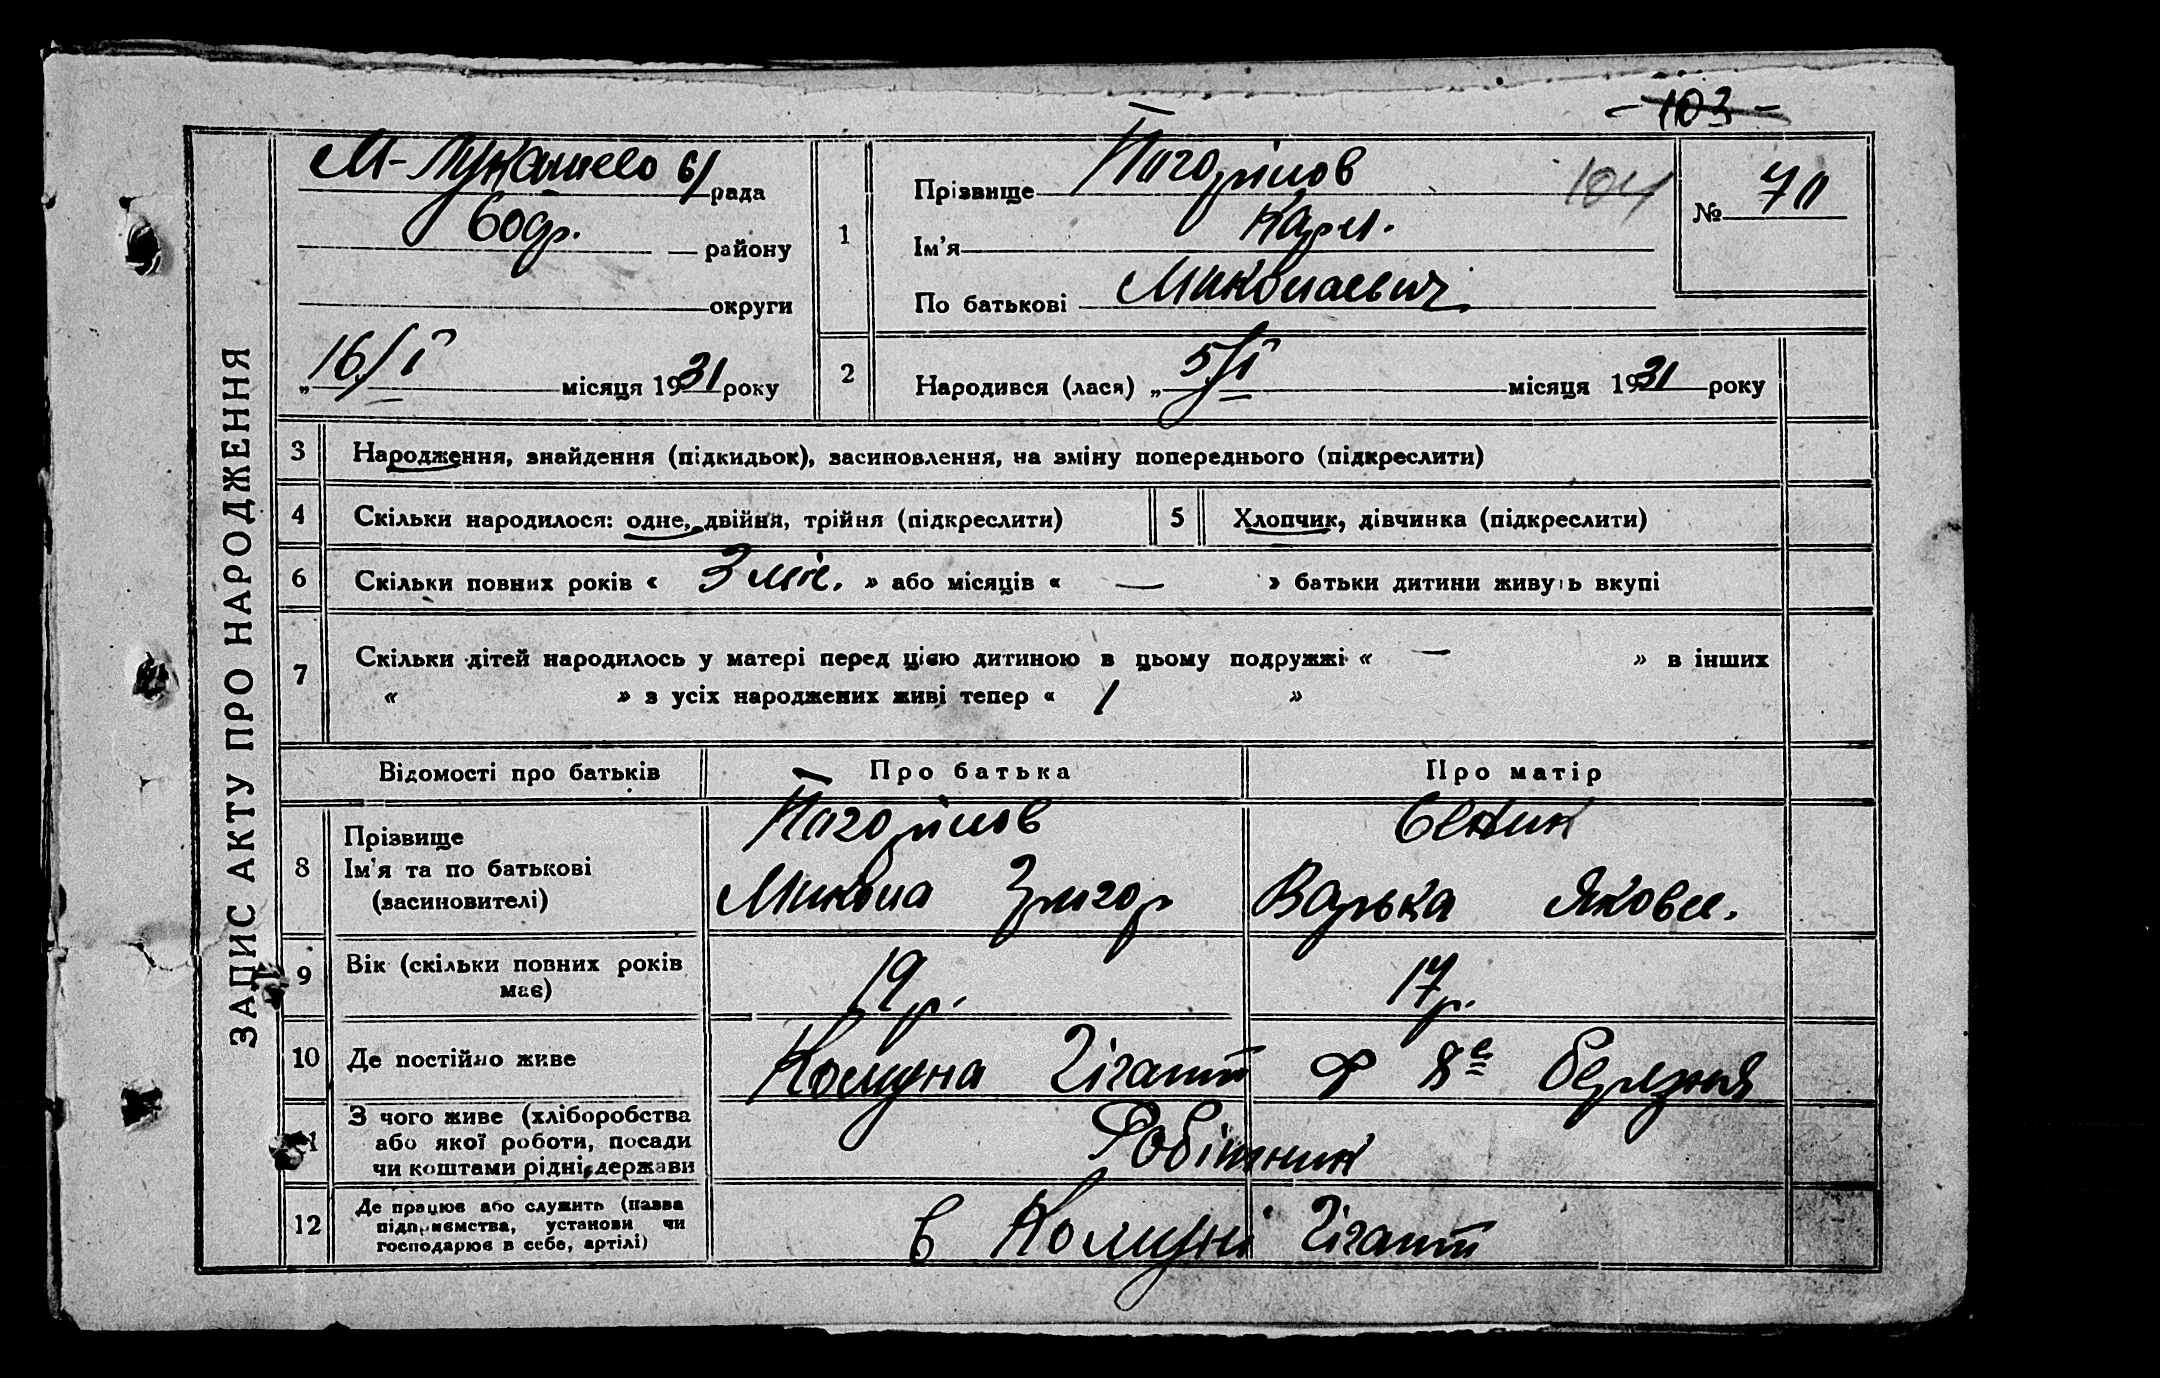 - 103 -
М-Лукашево б/рада
Прізвище Погорілов
104
№ 70
Бодр. району
1
Ім'я Карл.
округи
По батькові Миколаевич
„16/I місяця 1931 року
2
Народився (лася) „5/I місяця 1931 року
ЗАПИС АКТУ ПРО НАРОДЖЕННЯ
3 Народження, знайдення (підкидьок), засиновлення, на зміну попереднього (підкреслити)
4 Скільки народилося: одне, двійня, трійня (підкреслити) 5 Хлопчик, дівчинка (підкреслити)
6 Скільки повних років « 3 міс. » або місяців « — » батьки дитини живуть вкупі
7 Скільки дітей народилось у матері перед цією дитиною в цьому подружжі « — » в інших
« » з усіх народжених живі тепер « 1 »
Відомості про батьків Про батька Про матір
8 Прізвище Погорілов
Ім'я та по батькові
(засиновителі) Микола Григор Варька Яковл.
9 Вік (скільки повних років має) 19 р. 17 р.
10 Де постійно живе Комуна Гігант 8е Березня
11 З чого живе (хліборобства
або якої роботи, посади Робітник
чи коштами рідні, держави
12 Де працює або служить (назва
підприємства, установи чи в Комуні Гігант
господарює в себе, артілі)